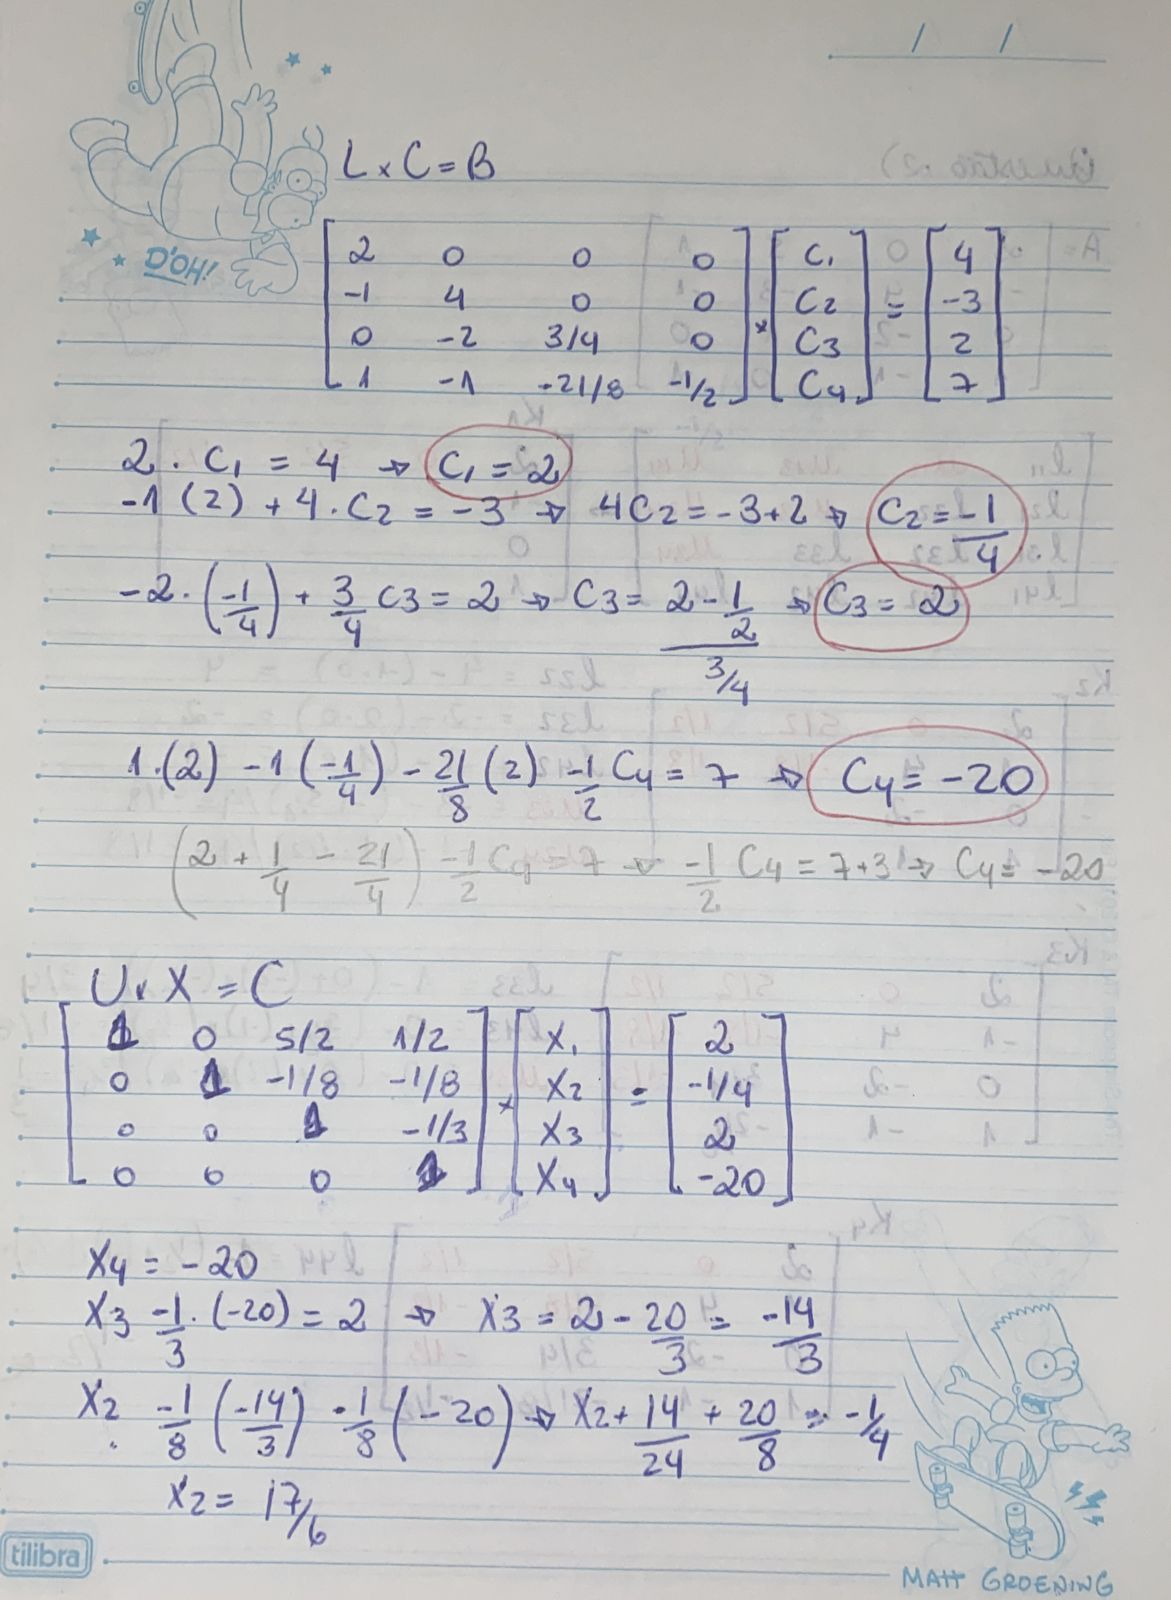 / /
L x C = B
¡HO,G!
[2 0 0 0] [C1] [4]
[-1 4 0 0] [C2] = [-3]
[0 -2 3/4 0] x [C3] [2]
[1 -1 -21/8 -1/2] [C4] [7]
2 . C1 = 4 → C1 = 2
-1 (2) + 4 . C2 = -3 → 4C2 = -3+2 → C2 = -1/4
-2 . (-1/4) + 3/4 C3 = 2 → C3 = (2 - 1/2)/(3/4) → C3 = 2
1 . (2) - 1 (-1/4) - 21/8 (2) - 1/2 C4 = 7 → C4 = -20
(2 + 1/4 - 21/4) - 1/2 C4 = 7 → -1/2 C4 = 7+3 → C4 = -20
U x X = C
[1 0 5/2 1/2] [X1] [2]
[0 1 -1/8 -1/8] [X2] = [-1/4]
[0 0 1 -1/3] x [X3] [2]
[0 0 0 1] [X4] [-20]
X4 = -20
X3 -1/3 . (-20) = 2 → X3 = 2 - 20/3 = -14/3
X2 -1/8 (-14/3) - 1/8 (-20) → X2 + 14/24 + 20/8 = -1/4
X2 = 17/6
tilibra
MATT GROENING